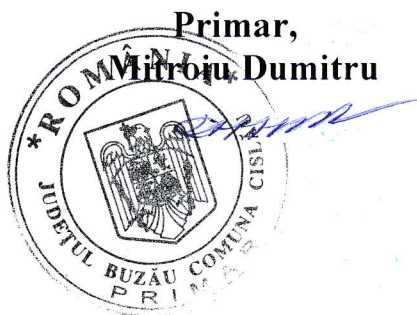 Primar,
Mitroiu Dumitru
* ROMÂNIA *
JUDEȚUL BUZĂU COMUNA CISLĂU
PRIMAR